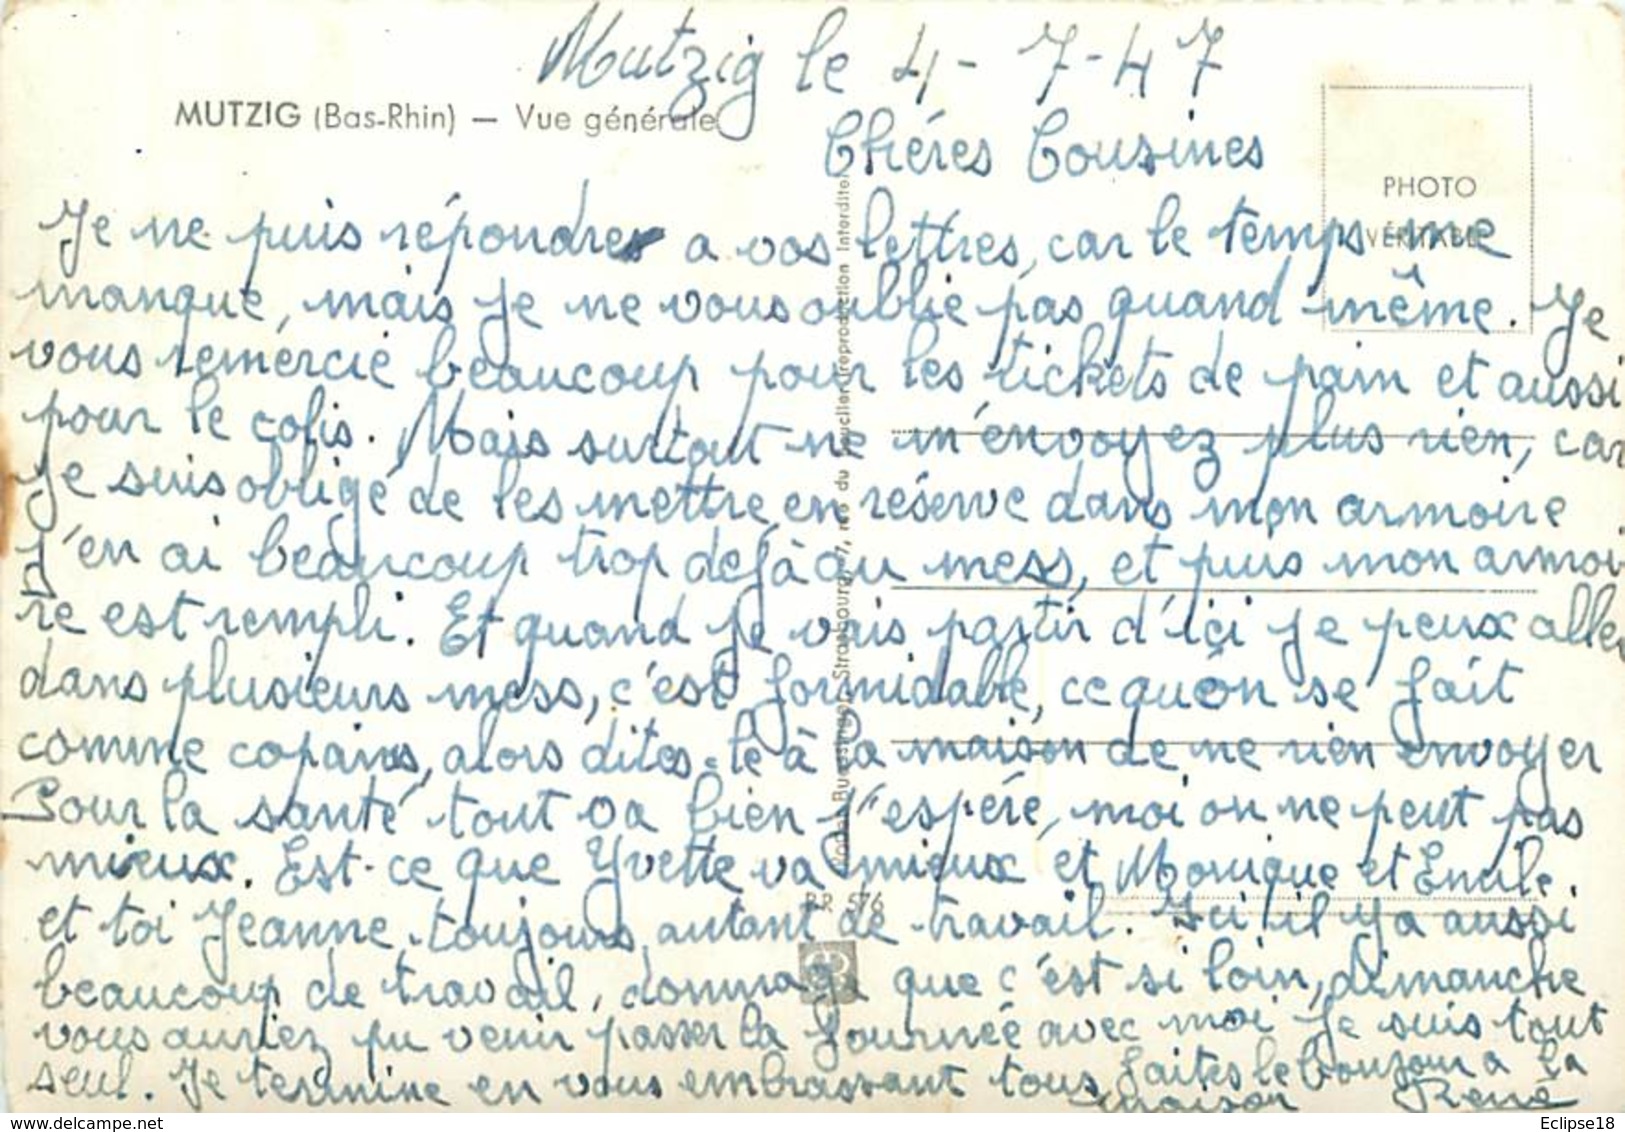 Mutzig le 4-7-47
MUTZIG (Bas-Rhin) — Vue générale
Chéres Cousines
PHOTO
VÉRITABLE
Je ne puis répondre a vos lettres, car le temps me
manque, mais je ne vous oublie pas quand même. Je
vous remercie beaucoup pour les tickets de pain et aussi
pour le colis. Mais surtout ne m'envoyez plus rien, car
je suis obligé de les mettre en réserve dans mon armoire
j'en ai beaucoup trop dejà au mess, et puis mon armoi-
re est rempli. Et quand je vais partir d'ici je peux aller
dans plusieurs mess, c'est formidable, ce qu'on se fait
comme copains, alors dites-le à la maison de ne rien envoyer
Pour la santé tout va bien j'espére, moi on ne peut pas
mieux. Est-ce que Yvette va mieux et Monique et Emile.
et toi Jeanne toujours autant de travail. Ici il y a aussi
beaucoup de travail, dommage que c'est si loin, dimanche
vous auriez pu venir passer la journée avec moi je suis tout
seul. Je termine en vous embrassant tous faites le bonjour a la
maison René
Strasbourg
reproduction interdite
RR 576
Eclipse18